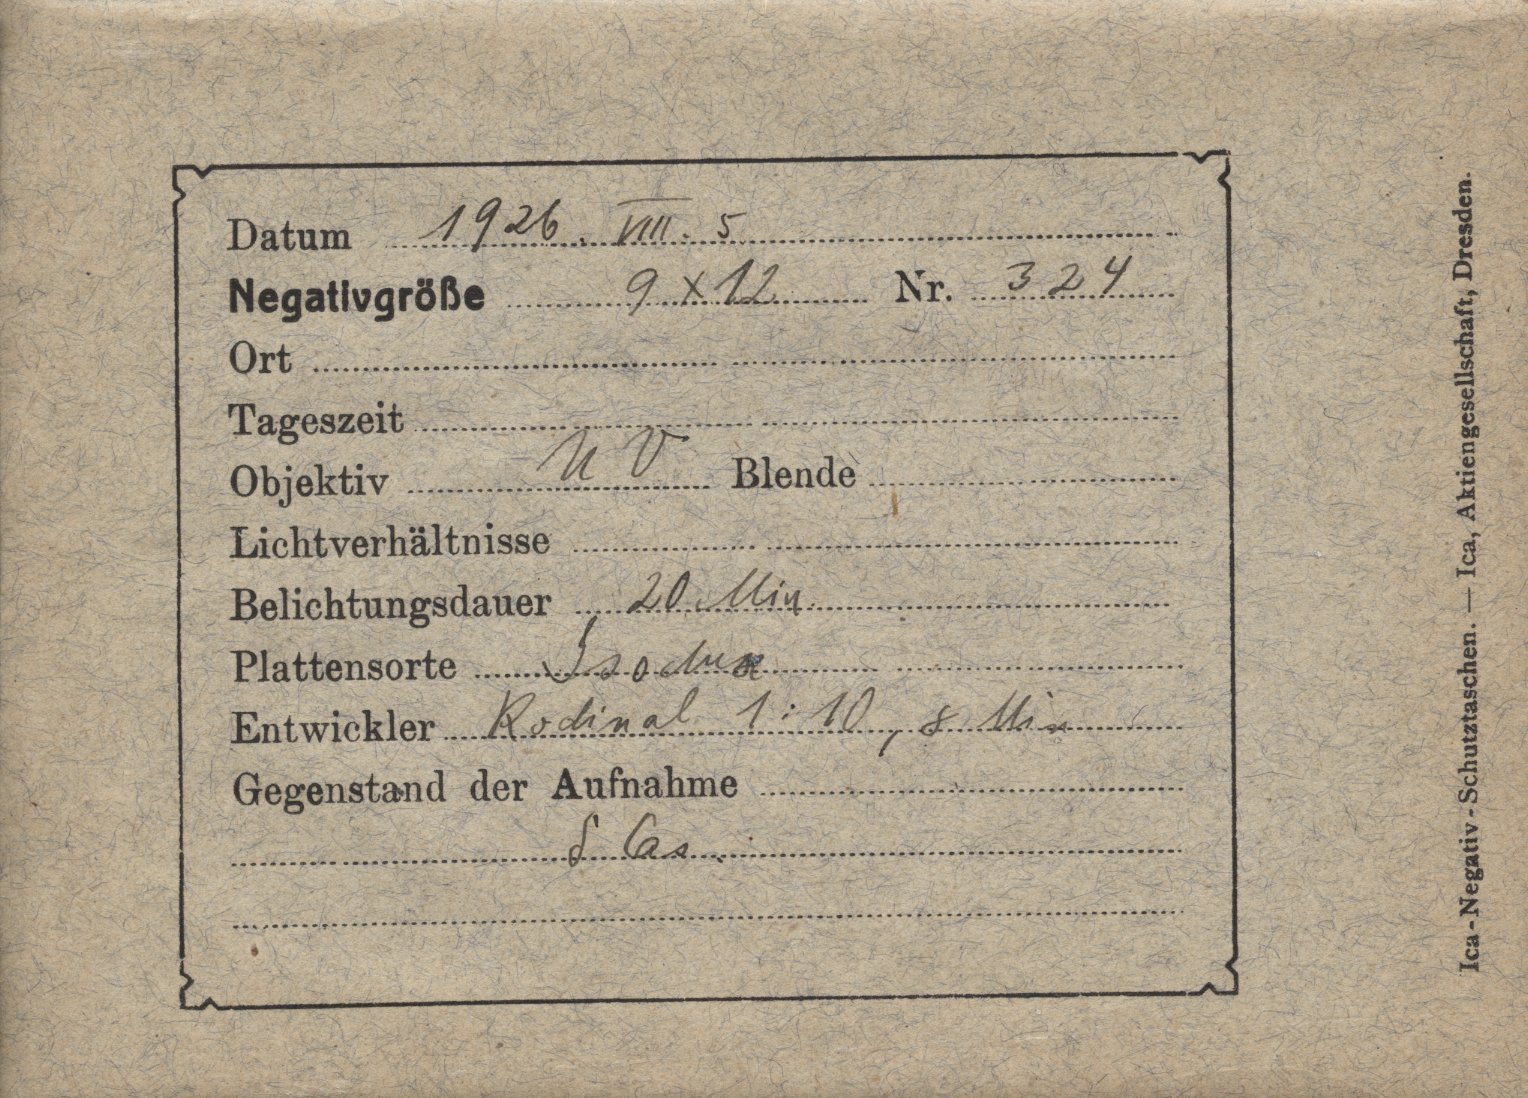 Datum 1926. VIII. 5
Negativgröße 9 x 12 Nr. 324
Ort
Tageszeit
Objektiv UV Blende
Lichtverhältnisse
Belichtungsdauer 20 Min
Plattensorte
Entwickler Rodinal 1:10, 8 Min
Gegenstand der Aufnahme
δ Cas.
Ica-Negativ-Schutztaschen. — Ica, Aktiengesellschaft, Dresden.